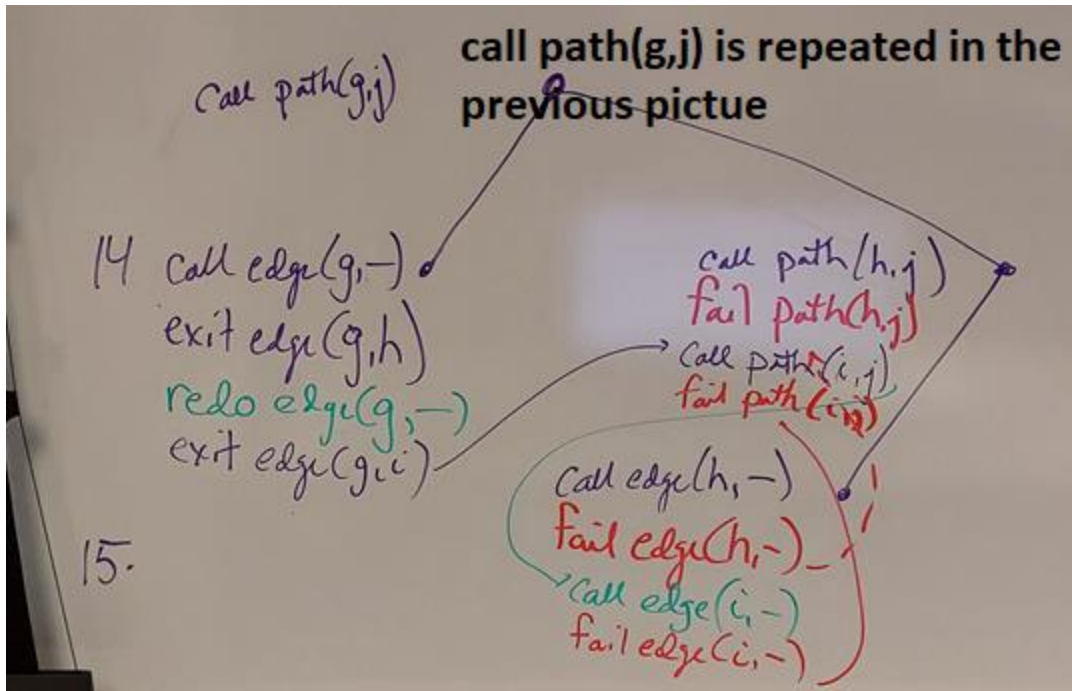 call path(g,j) is repeated in the
previous pictue
Call path(g,j)
14 call edge(g,-)
exit edge(g,h)
redo edge(g,-)
exit edge(g,i)
15.
call path(h,j)
fail path(h,j)
call path(i,j)
fail path(i,j)
call edge(h,-)
fail edge(h,-)
call edge(i,-)
fail edge(i,-)